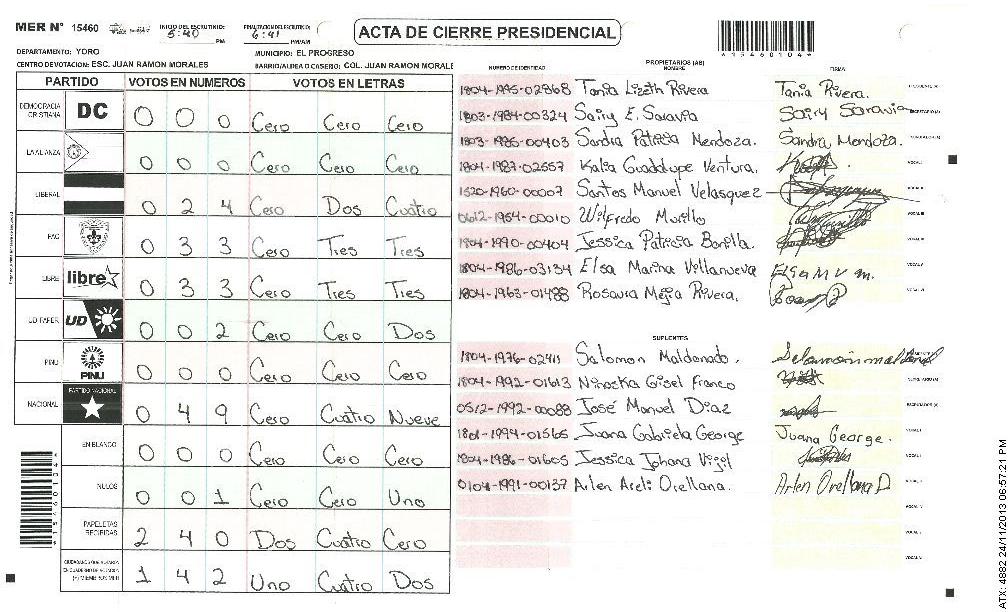 MER N° 15460
INICIO DEL ESCRUTINIO: 5:40 PM
FINALIZACION DEL ESCRUTINIO: 6:41 PM/AM
ACTA DE CIERRE PRESIDENCIAL
*15460104*
DEPARTAMENTO: YORO
MUNICIPIO: EL PROGRESO
CENTRO DE VOTACION: ESC. JUAN RAMON MORALES
BARRIO/ALDEA O CASERIO: COL. JUAN RAMON MORALE
PARTIDO VOTOS EN NUMEROS VOTOS EN LETRAS
DEMOCRACIA CRISTIANA DC 0 0 0 Cero Cero Cero
LA ALIANZA 0 0 0 Cero Cero Cero
LIBERAL 0 2 4 Cero Dos Cuatro
PAC 0 3 3 Cero Tres Tres
LIBRE libre 0 3 3 Cero Tres Tres
UD FAPER UD 0 0 2 Cero Cero Dos
PINU PINU 0 0 0 Cero Cero Cero
NACIONAL PARTIDO NACIONAL 0 4 9 Cero Cuatro Nueve
EN BLANCO 0 0 0 Cero Cero Cero
NULOS 0 0 1 Cero Cero Uno
PAPELETAS RECIBIDAS 2 4 0 Dos Cuatro Cero
1 4 2 Uno Cuatro Dos
NUMERO DE IDENTIDAD PROPIETARIOS (AS) NOMBRE FIRMA
1804-1995-02868 Tania Lizeth Rivera Tania Rivera.
1803-1984-00324 Sairy E. Saravia Sairy Saravia
1803-1985-00403 Sandra Patricia Mendoza. Sandra Mendoza.
1804-1987-02557 Katia Guadalupe Ventura.
1520-1960-00007 Santos Manuel Velasquez
0612-1954-00010 Wilfredo Murillo
1804-1990-00404 Jessica Patricia Bonilla.
1804-1986-03134 Elsa Marina Villanueva Elsa M V m.
1804-1963-01488 Rosaura Mejia Rivera.
SUPLENTES
1804-1976-02411 Salomon Maldonado. Salomón maldonado
1804-1992-01613 Niroska Gisel Franco
0512-1992-00088 José Manuel Diaz
1801-1994-01565 Juana Gabriela George Juana George.
1804-1986-01605 Jessica Johana Vigil
0104-1991-00137 Arlen Areli Orellana. Arlen Orellana D
ATX: 4882 24/11/2013 06:57:21 PM